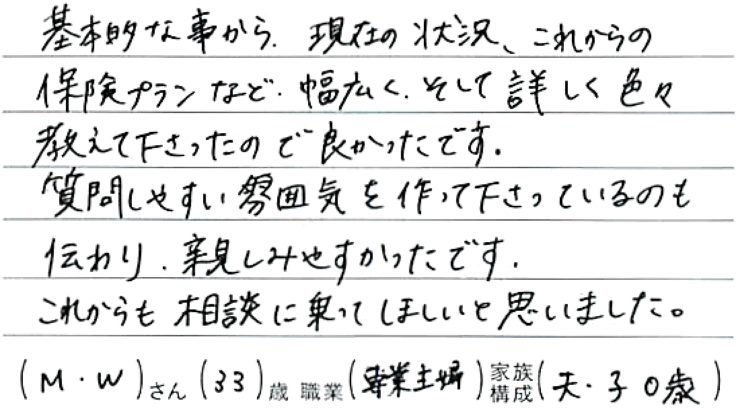 基本的な事から、現在の状況、これからの
保険プランなど、幅広く、そして詳しく色々
教えて下さったので良かったです。
質問しやすい雰囲気を作って下さっているのも
伝わり、親しみやすかったです。
これからも相談に乗ってほしいと思いました。
(M・W)さん(33)歳 職業(専業主婦)家族構成(夫・子0歳)